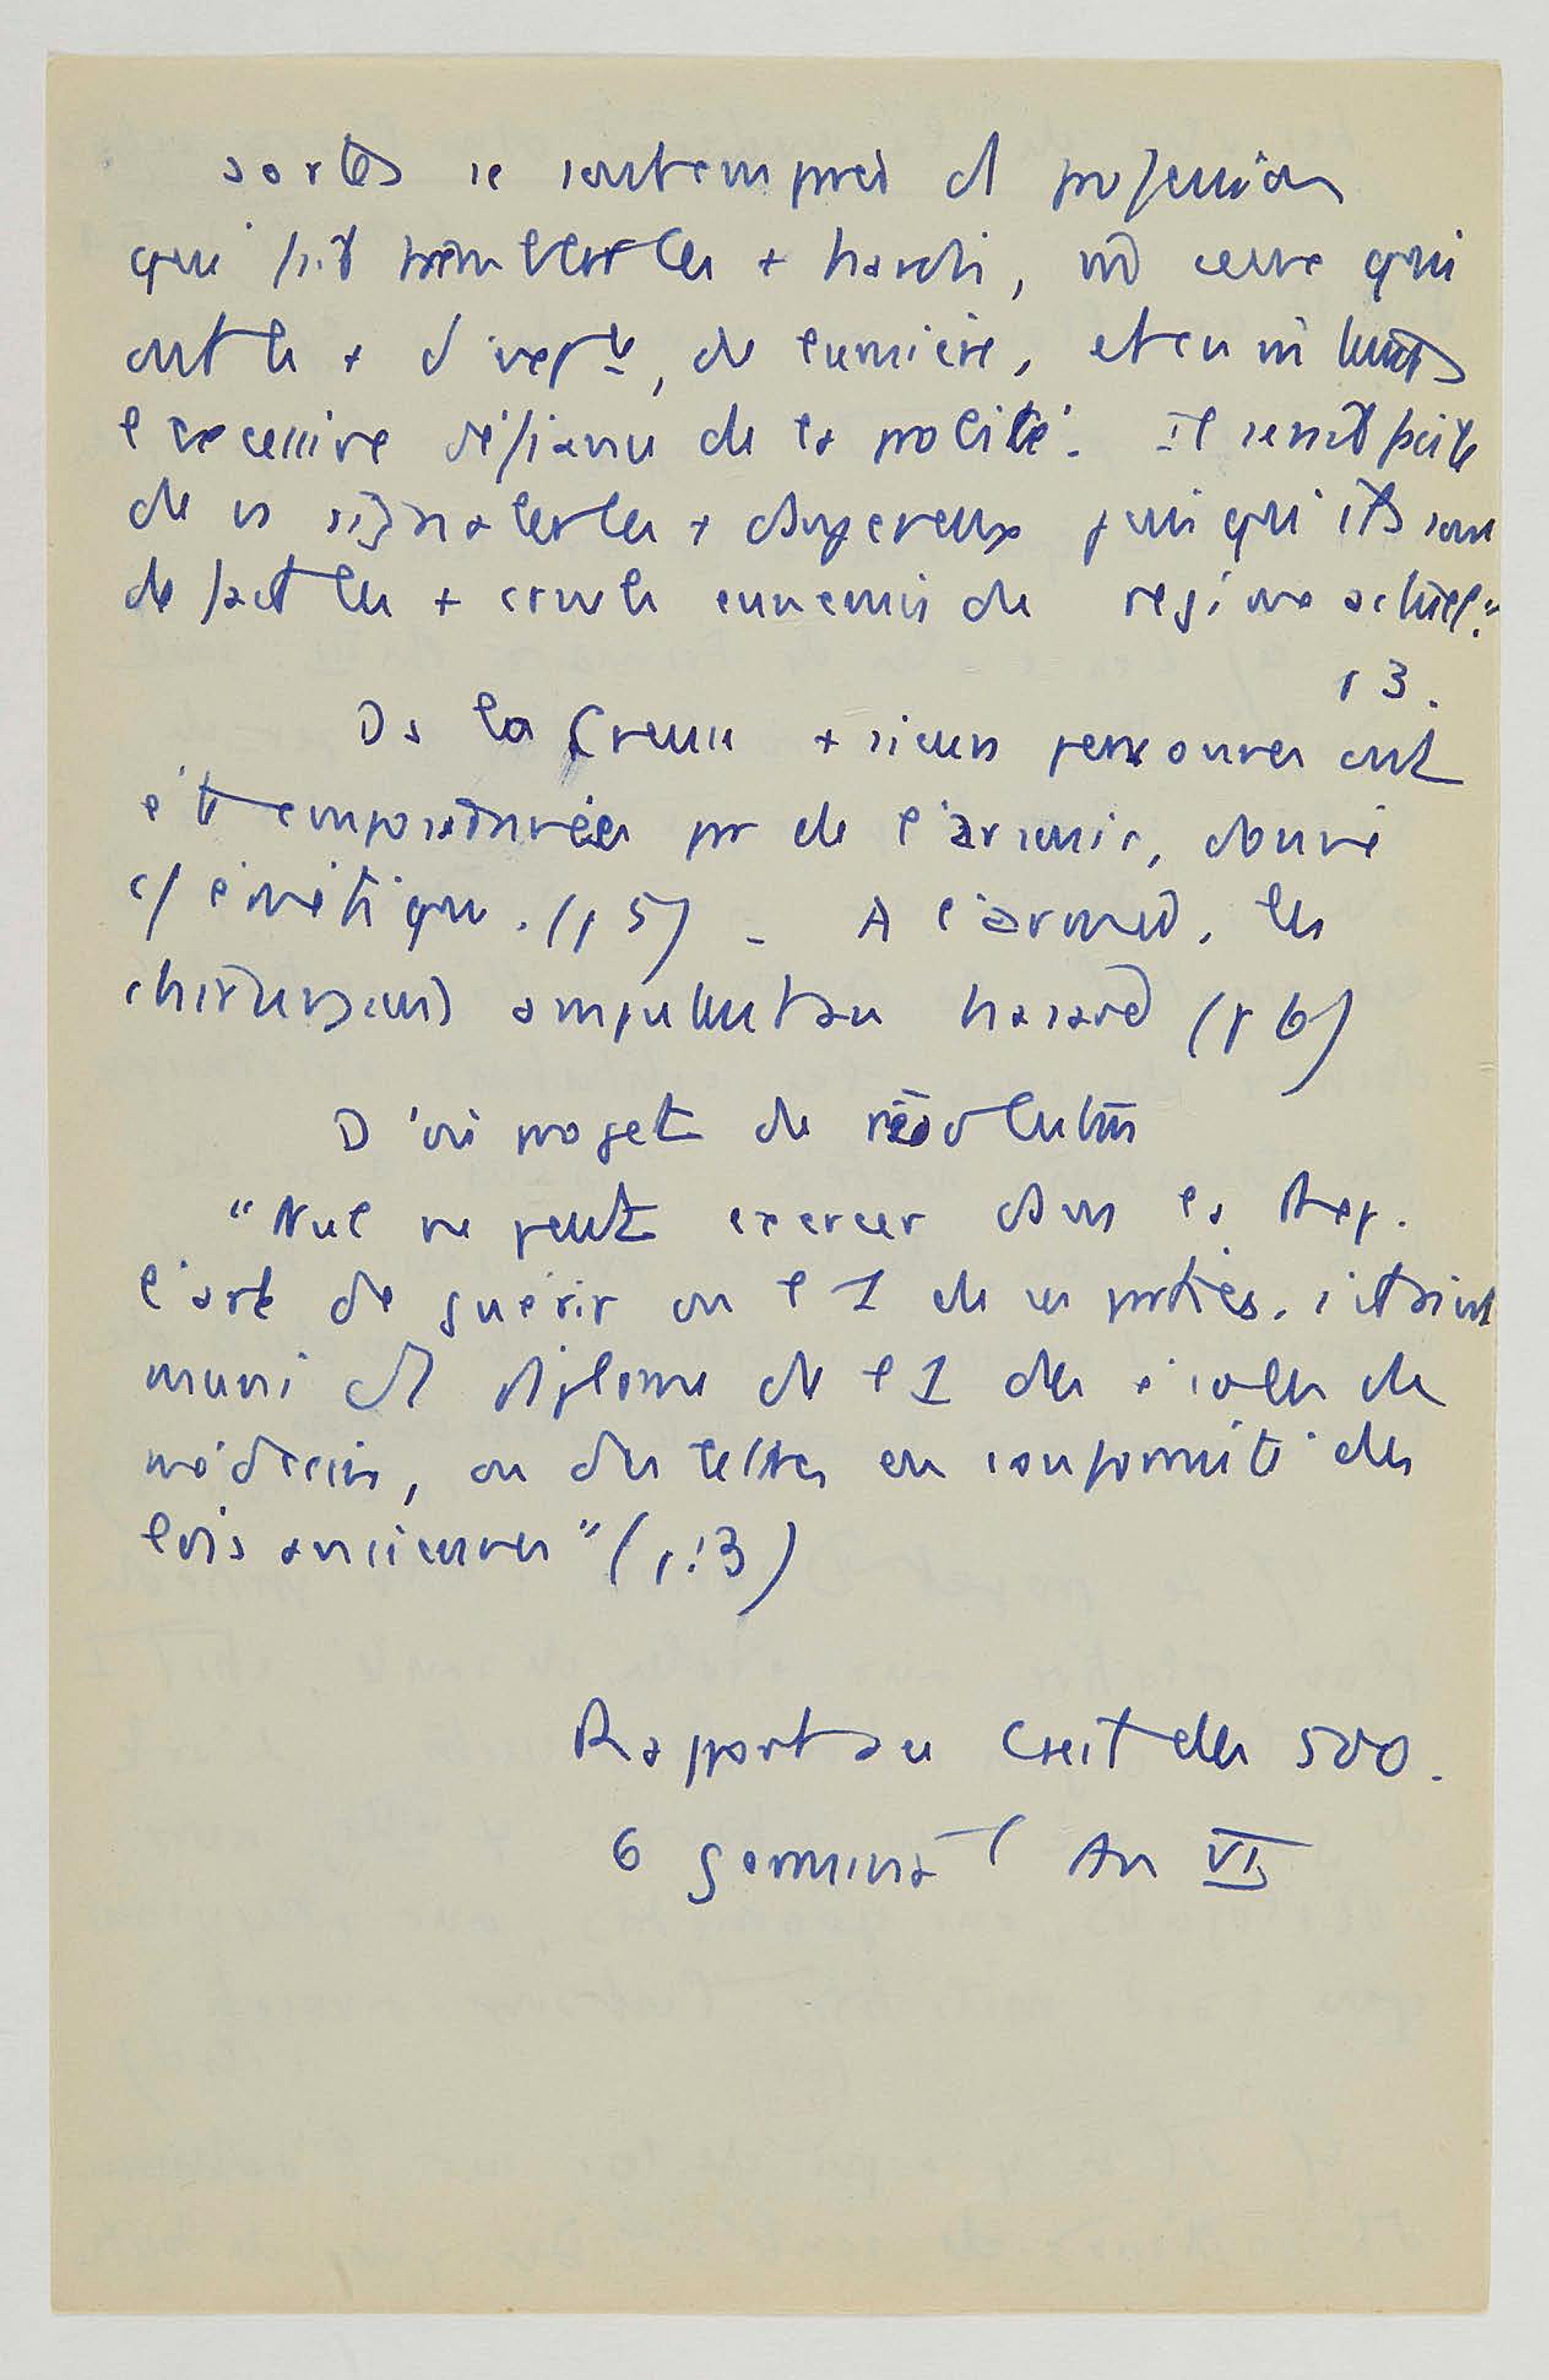 sortes se sont emparés d'1 profession
qui fait trembler les + hardis, md ceux qui
ont le + d', de lumière, et en m temps
excessive défiance de la. Il serait facile
de vs signaler les + dangereux puisqu'ils sont
de fait les + cruels ennemis du régime actuel."
p 3.
Ds la Creuse +sieurs personnes ont
été empoisonnées par de l'arsenic, donné
c/ émétique. (p 5) _ A l'armée, les
chirurgiens amputent au hasard (p 6)
D'où projet de résolution
"Nul ne peut exercer dans la Rep.
l'art de guérir ou l'1 de ses parties, s'il n'est
muni d'1 diplome de l'1 des écoles de
médecin, ou des lettres en conformité des
lois anciennes" (p. 13)
Rapport au Cseil des 500.
6 germinal An VI